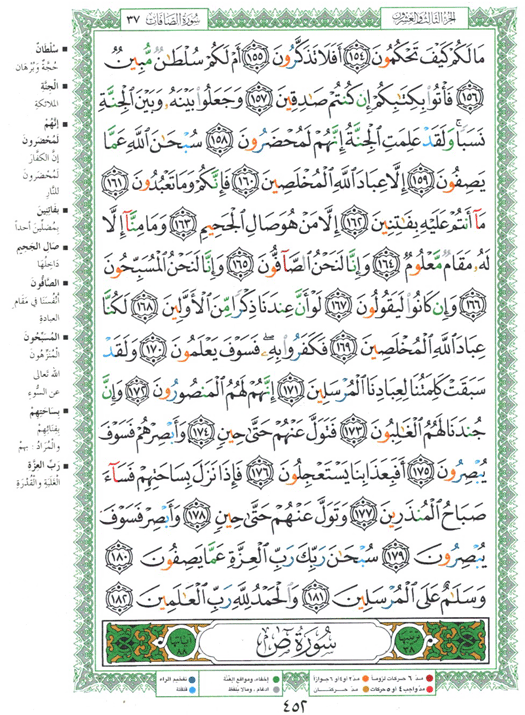 الجزء الثالث والعشرون
سورة الصافات ٣٧
مَا لَكُمْ كَيْفَ تَحْكُمُونَ ١٥٤ أَفَلَا تَذَكَّرُونَ ١٥٥ أَمْ لَكُمْ سُلْطَانٌ مُّبِينٌ
١٥٦ فَأْتُوا بِكِتَابِكُمْ إِن كُنتُمْ صَادِقِينَ ١٥٧ وَجَعَلُوا بَيْنَهُ وَبَيْنَ الْجِنَّةِ
نَسَبًا ۚ وَلَقَدْ عَلِمَتِ الْجِنَّةُ إِنَّهُمْ لَمُحْضَرُونَ ١٥٨ سُبْحَانَ اللَّهِ عَمَّا
يَصِفُونَ ١٥٩ إِلَّا عِبَادَ اللَّهِ الْمُخْلَصِينَ ١٦٠ فَإِنَّكُمْ وَمَا تَعْبُدُونَ ١٦١
مَا أَنتُمْ عَلَيْهِ بِفَاتِنِينَ ١٦٢ إِلَّا مَنْ هُوَ صَالِ الْجَحِيمِ ١٦٣ وَمَا مِنَّا إِلَّا
لَهُ مَقَامٌ مَّعْلُومٌ ١٦٤ وَإِنَّا لَنَحْنُ الصَّافُّونَ ١٦٥ وَإِنَّا لَنَحْنُ الْمُسَبِّحُونَ
١٦٦ وَإِن كَانُوا لَيَقُولُونَ ١٦٧ لَوْ أَنَّ عِندَنَا ذِكْرًا مِّنَ الْأَوَّلِينَ ١٦٨ لَكُنَّا
عِبَادَ اللَّهِ الْمُخْلَصِينَ ١٦٩ فَكَفَرُوا بِهِ ۖ فَسَوْفَ يَعْلَمُونَ ١٧٠ وَلَقَدْ
سَبَقَتْ كَلِمَتُنَا لِعِبَادِنَا الْمُرْسَلِينَ ١٧١ إِنَّهُمْ لَهُمُ الْمَنصُورُونَ ١٧٢ وَإِنَّ
جُندَنَا لَهُمُ الْغَالِبُونَ ١٧٣ فَتَوَلَّ عَنْهُمْ حَتَّىٰ حِينٍ ١٧٤ وَأَبْصِرْهُمْ فَسَوْفَ
يُبْصِرُونَ ١٧٥ أَفَبِعَذَابِنَا يَسْتَعْجِلُونَ ١٧٦ فَإِذَا نَزَلَ بِسَاحَتِهِمْ فَسَاءَ
صَبَاحُ الْمُنذَرِينَ ١٧٧ وَتَوَلَّ عَنْهُمْ حَتَّىٰ حِينٍ ١٧٨ وَأَبْصِرْ فَسَوْفَ
يُبْصِرُونَ ١٧٩ سُبْحَانَ رَبِّكَ رَبِّ الْعِزَّةِ عَمَّا يَصِفُونَ ١٨٠
وَسَلَامٌ عَلَى الْمُرْسَلِينَ ١٨١ وَالْحَمْدُ لِلَّهِ رَبِّ الْعَالَمِينَ ١٨٢
ترتيبها ٣٨
سُورَةُ ص
آياتها
سُلْطَانٌ
حُجَّةٌ وَبُرْهَان
الْجِنَّةِ
الملائكة
إِنَّهُمْ
لَمُحْضَرُونَ
إنَّ الكفّار
لَمُحْضَرُونَ
للنّار
بِفَاتِنِينَ
بِمُضِلّينَ أحداً
صَالِ الجَحِيمِ
دَاخِلُهَا
الصَّافُّونَ
أنفُسَنا في مقام
العبادة
الْمُسَبِّحُونَ
المُنَزِّهُونَ
الله تعالى
عن السُّوء
بِسَاحَتِهِمْ
بِفِنَائِهِمْ
والمُرَادُ : بهم
رَبِّ العِزَّةِ
الغَلَبَةِ وَالقُدْرَةِ
مدّ ٦ حركات لزوماً
مدّ ٢ أو ٤ أو ٦ جوازاً
إخفاء، ومواقع الغُنَّة
تفخيم الراء
مدّ واجب ٤ أو ٥ حركات
مدّ حركتان
ادغام، وما لا يُلفظ
قلقلة
٤٥٢